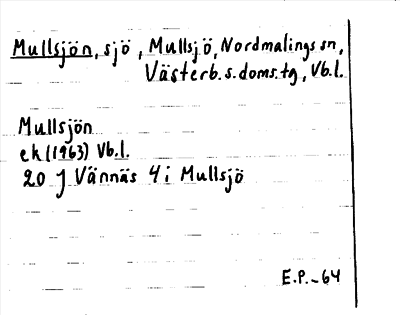 Mullsjön, sjö, Mullsjö, Nordmalings sn,
Västerb. s. doms. tg, Vb.l.
Mullsjön
ek (1963) Vb.l.
20 J Vännäs 4 i Mullsjö
E.P. -64